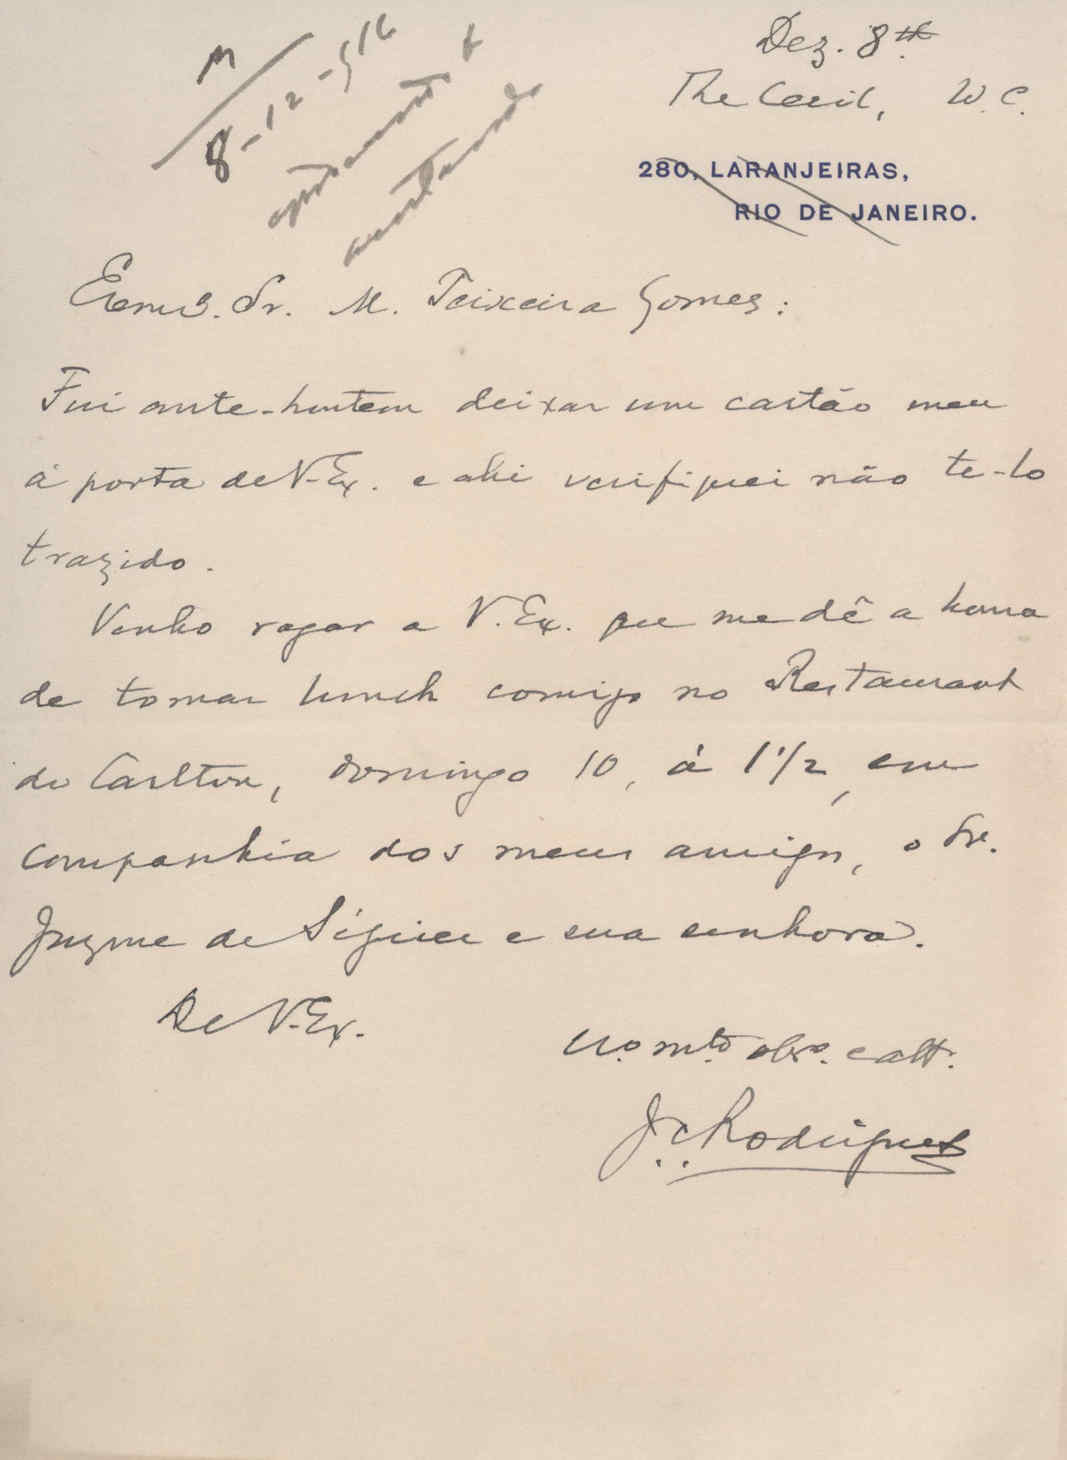 Dez. 8th
The Cecil, W.C.
280, LARANJEIRAS,
RIO DE JANEIRO.
M
8-12-916
Exmo. Sr. M. Teixeira Gomes:
Fui ante-hontem deixar um cartão meu
á porta de V. Ex. e ahi verifiquei não te-lo
trazido.
Venho rogar a V. Ex. que me dê a honra
de tomar lunch comigo no Restaurant
do Carlton, domingo 10, á 1 1/2, em
companhia dos meus amigos, o Sr.
de e sua senhora.
De V. Ex.
mto. obro.
J. C. Rodrigues